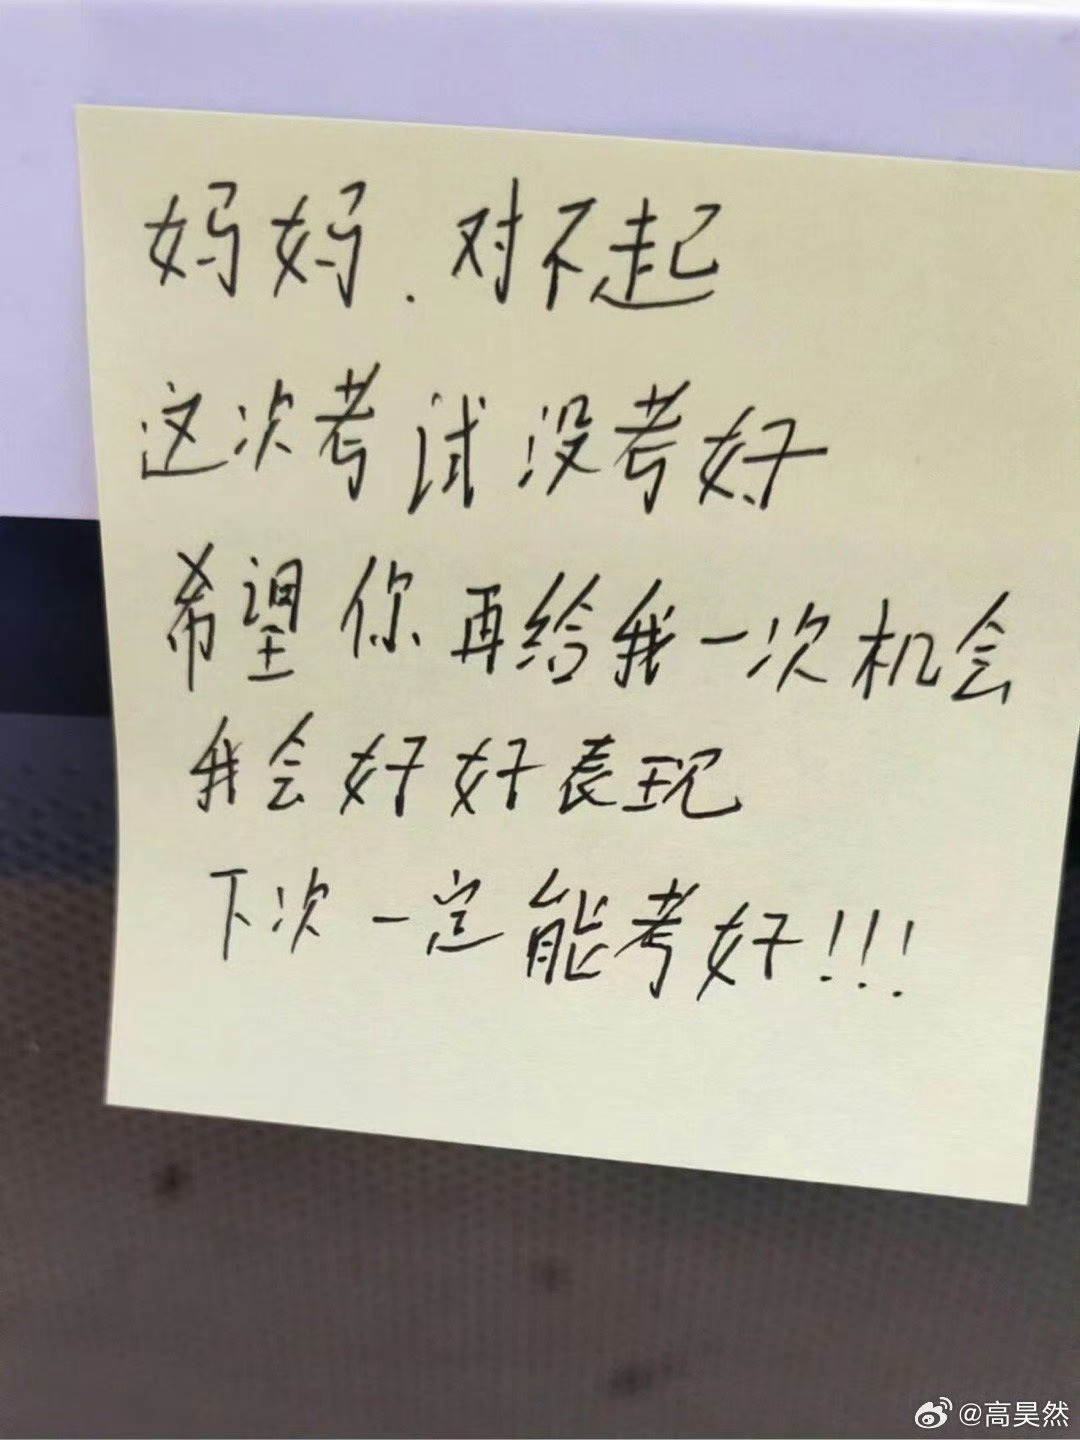 妈妈.对不起
这次考试没考好
希望你再给我一次机会
我会好好表现
下次一定能考好!!!
@高昊然